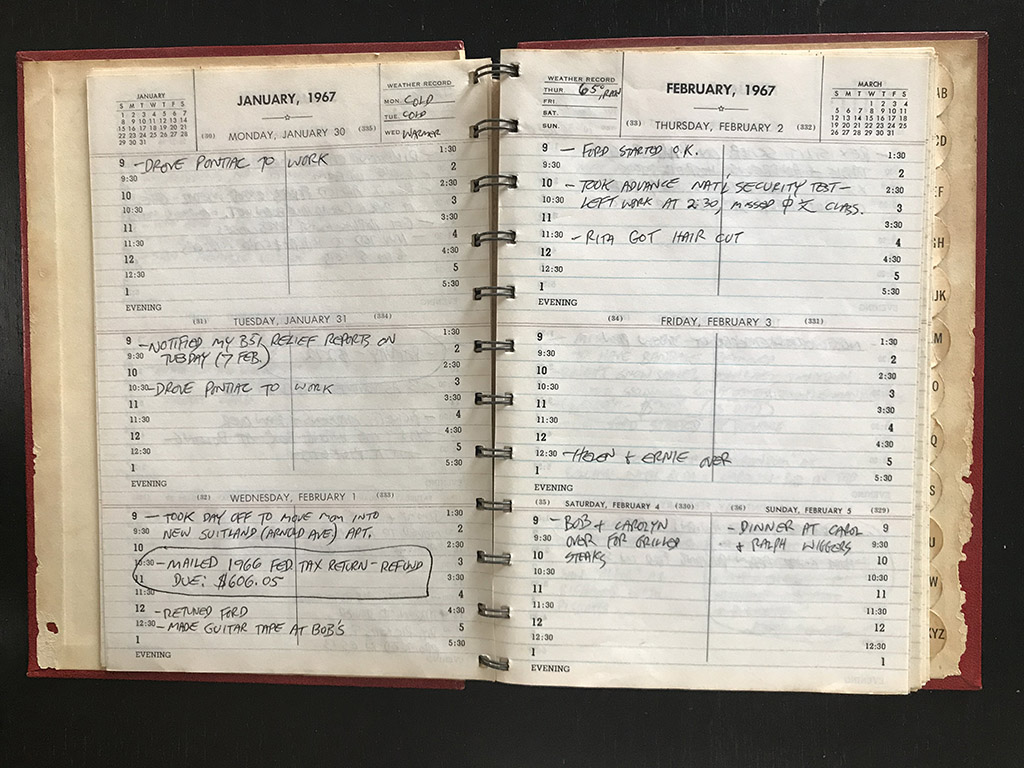 JANUARY
S M T W T F S
1 2 3 4 5 6 7
8 9 10 11 12 13 14
15 16 17 18 19 20 21
22 23 24 25 26 27 28
29 30 31
JANUARY, 1967
WEATHER RECORD
MON. COLD
TUE. COLD
WED. WARMER
(30) MONDAY, JANUARY 30 (335)
9 - DROVE PONTIAC TO WORK 1:30
9:30 2
10 2:30
10:30 3
11 3:30
11:30 4
12 4:30
12:30 5
1 5:30
EVENING
(31) TUESDAY, JANUARY 31 (334)
9 - NOTIFIED MY BSI RELIEF REPORTS ON 1:30
9:30 TUESDAY (7 FEB.) 2
10 2:30
10:30 - DROVE PONTIAC TO WORK 3
11 3:30
11:30 4
12 4:30
12:30 5
1 5:30
EVENING
(32) WEDNESDAY, FEBRUARY 1 (333)
9 - TOOK DAY OFF TO MOVE MOM INTO 1:30
9:30 NEW SUITLAND (ARNOLD AVE.) APT. 2
10 2:30
10:30 - MAILED 1966 FED TAX RETURN - REFUND 3
11 DUE: $606.05 3:30
11:30 4
12 - RETUNED FORD 4:30
12:30 - MADE GUITAR TAPE AT BOB'S 5
1 5:30
EVENING
WEATHER RECORD
THUR 65°, RAIN
FRI.
SAT.
SUN.
FEBRUARY, 1967
MARCH
S M T W T F S
1 2 3 4
5 6 7 8 9 10 11
12 13 14 15 16 17 18
19 20 21 22 23 24 25
26 27 28 29 30 31
(33) THURSDAY, FEBRUARY 2 (332)
9 - FORD STARTED O.K. 1:30
9:30 2
10 - TOOK ADVANCE NAT'L SECURITY TEST - 2:30
10:30 LEFT WORK AT 2:30, MISSED 中文 CLASS. 3
11 3:30
11:30 - RITA GOT HAIR CUT 4
12 4:30
12:30 5
1 5:30
EVENING
(34) FRIDAY, FEBRUARY 3 (331)
9 1:30
9:30 2
10 2:30
10:30 3
11 3:30
11:30 4
12 4:30
12:30 - HELEN + ERNIE OVER 5
1 5:30
EVENING
(35) SATURDAY, FEBRUARY 4 (330)
9 - BOB + CAROLYN
9:30 OVER FOR GRILLED
10 STEAKS
10:30
11
11:30
12
12:30
1
EVENING
(36) SUNDAY, FEBRUARY 5 (329)
- DINNER AT CAROL 9
+ RALPH WIGGERS 9:30
10
10:30
11
11:30
12
12:30
1
AB
CD
EF
GH
JK
M
O
Q
S
U
W
XYZ